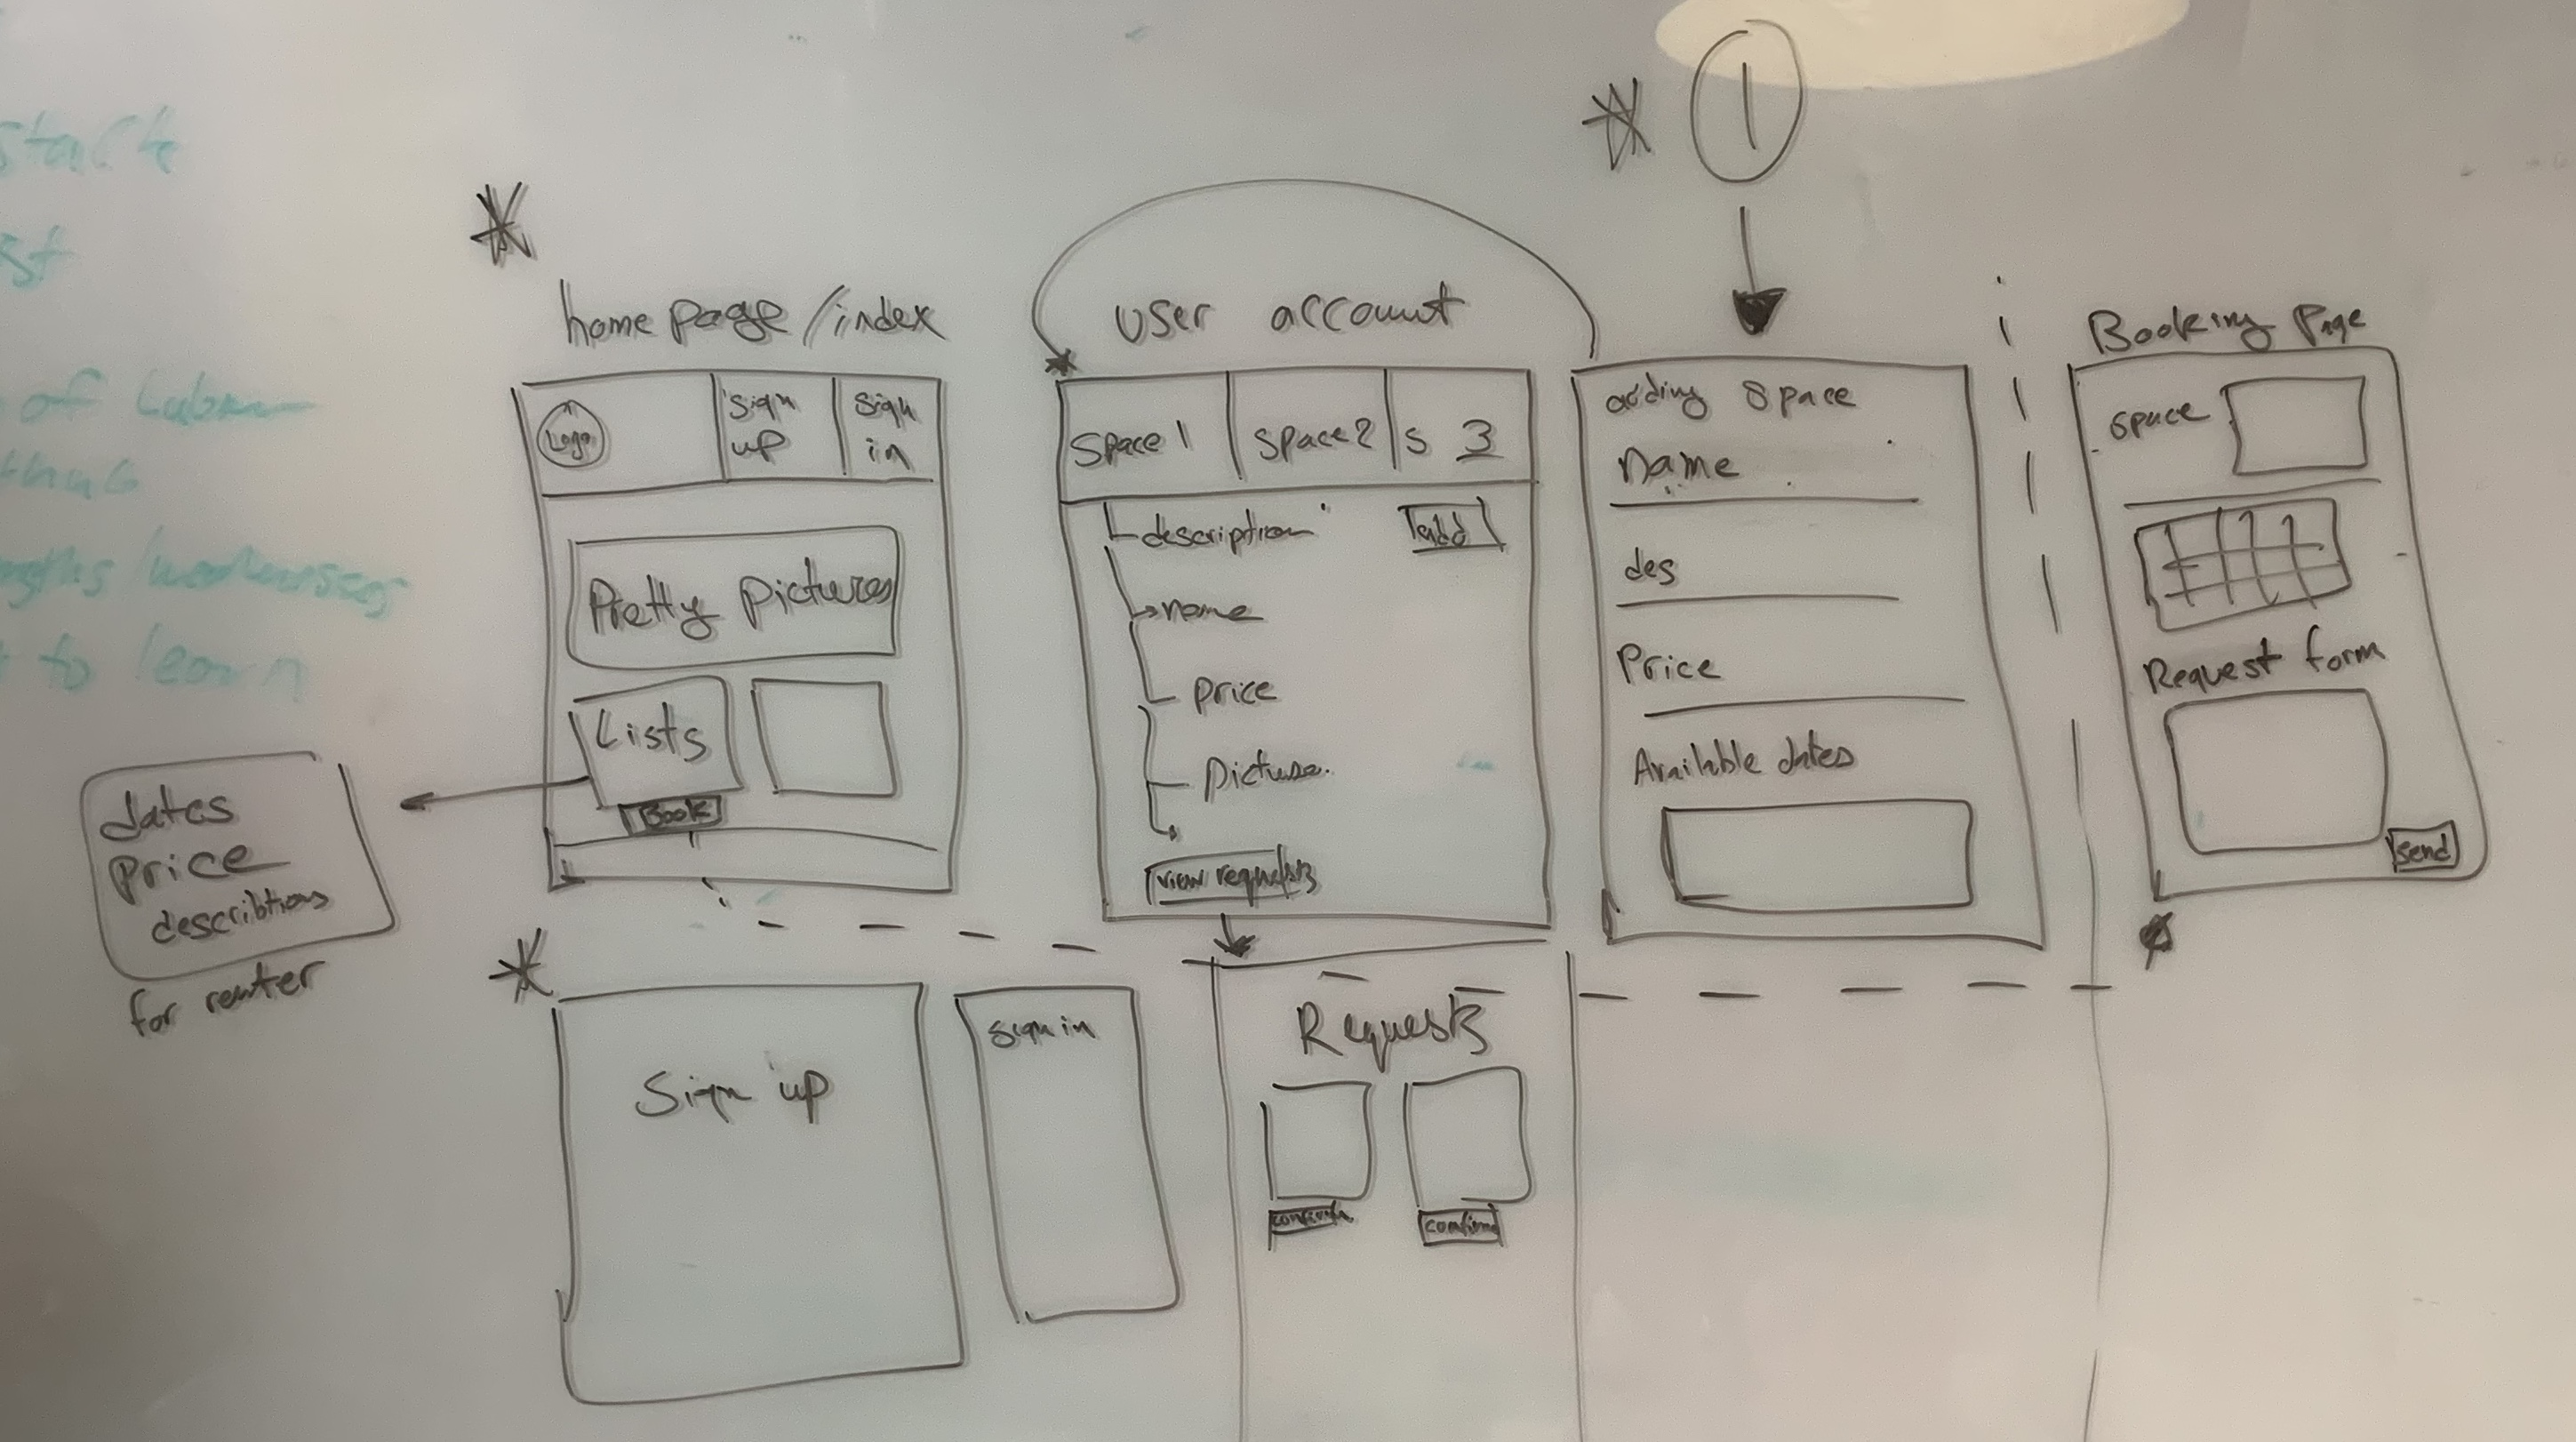 stack
of
to learn
1
home page/index
Logo
sign
up
sign
in
Pretty pictures
Lists
Book
dates
price
describtions
for renter
user account
Space 1
Space 2
S 3
description
add
name
price
picture.
view requests
adding space
name
des
Price
Available dates
Booking Page
space
Request form
send
Sign up
sign in
Requests
confirm
confirm